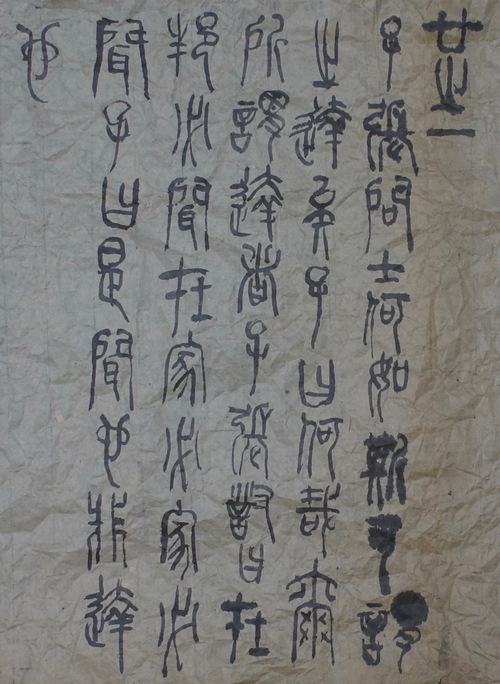 廿之一
子張問士何如斯可謂
之達矣子曰何哉爾
所謂達者子張對曰在
邦必聞在家必家必
聞子曰是聞也非達
也